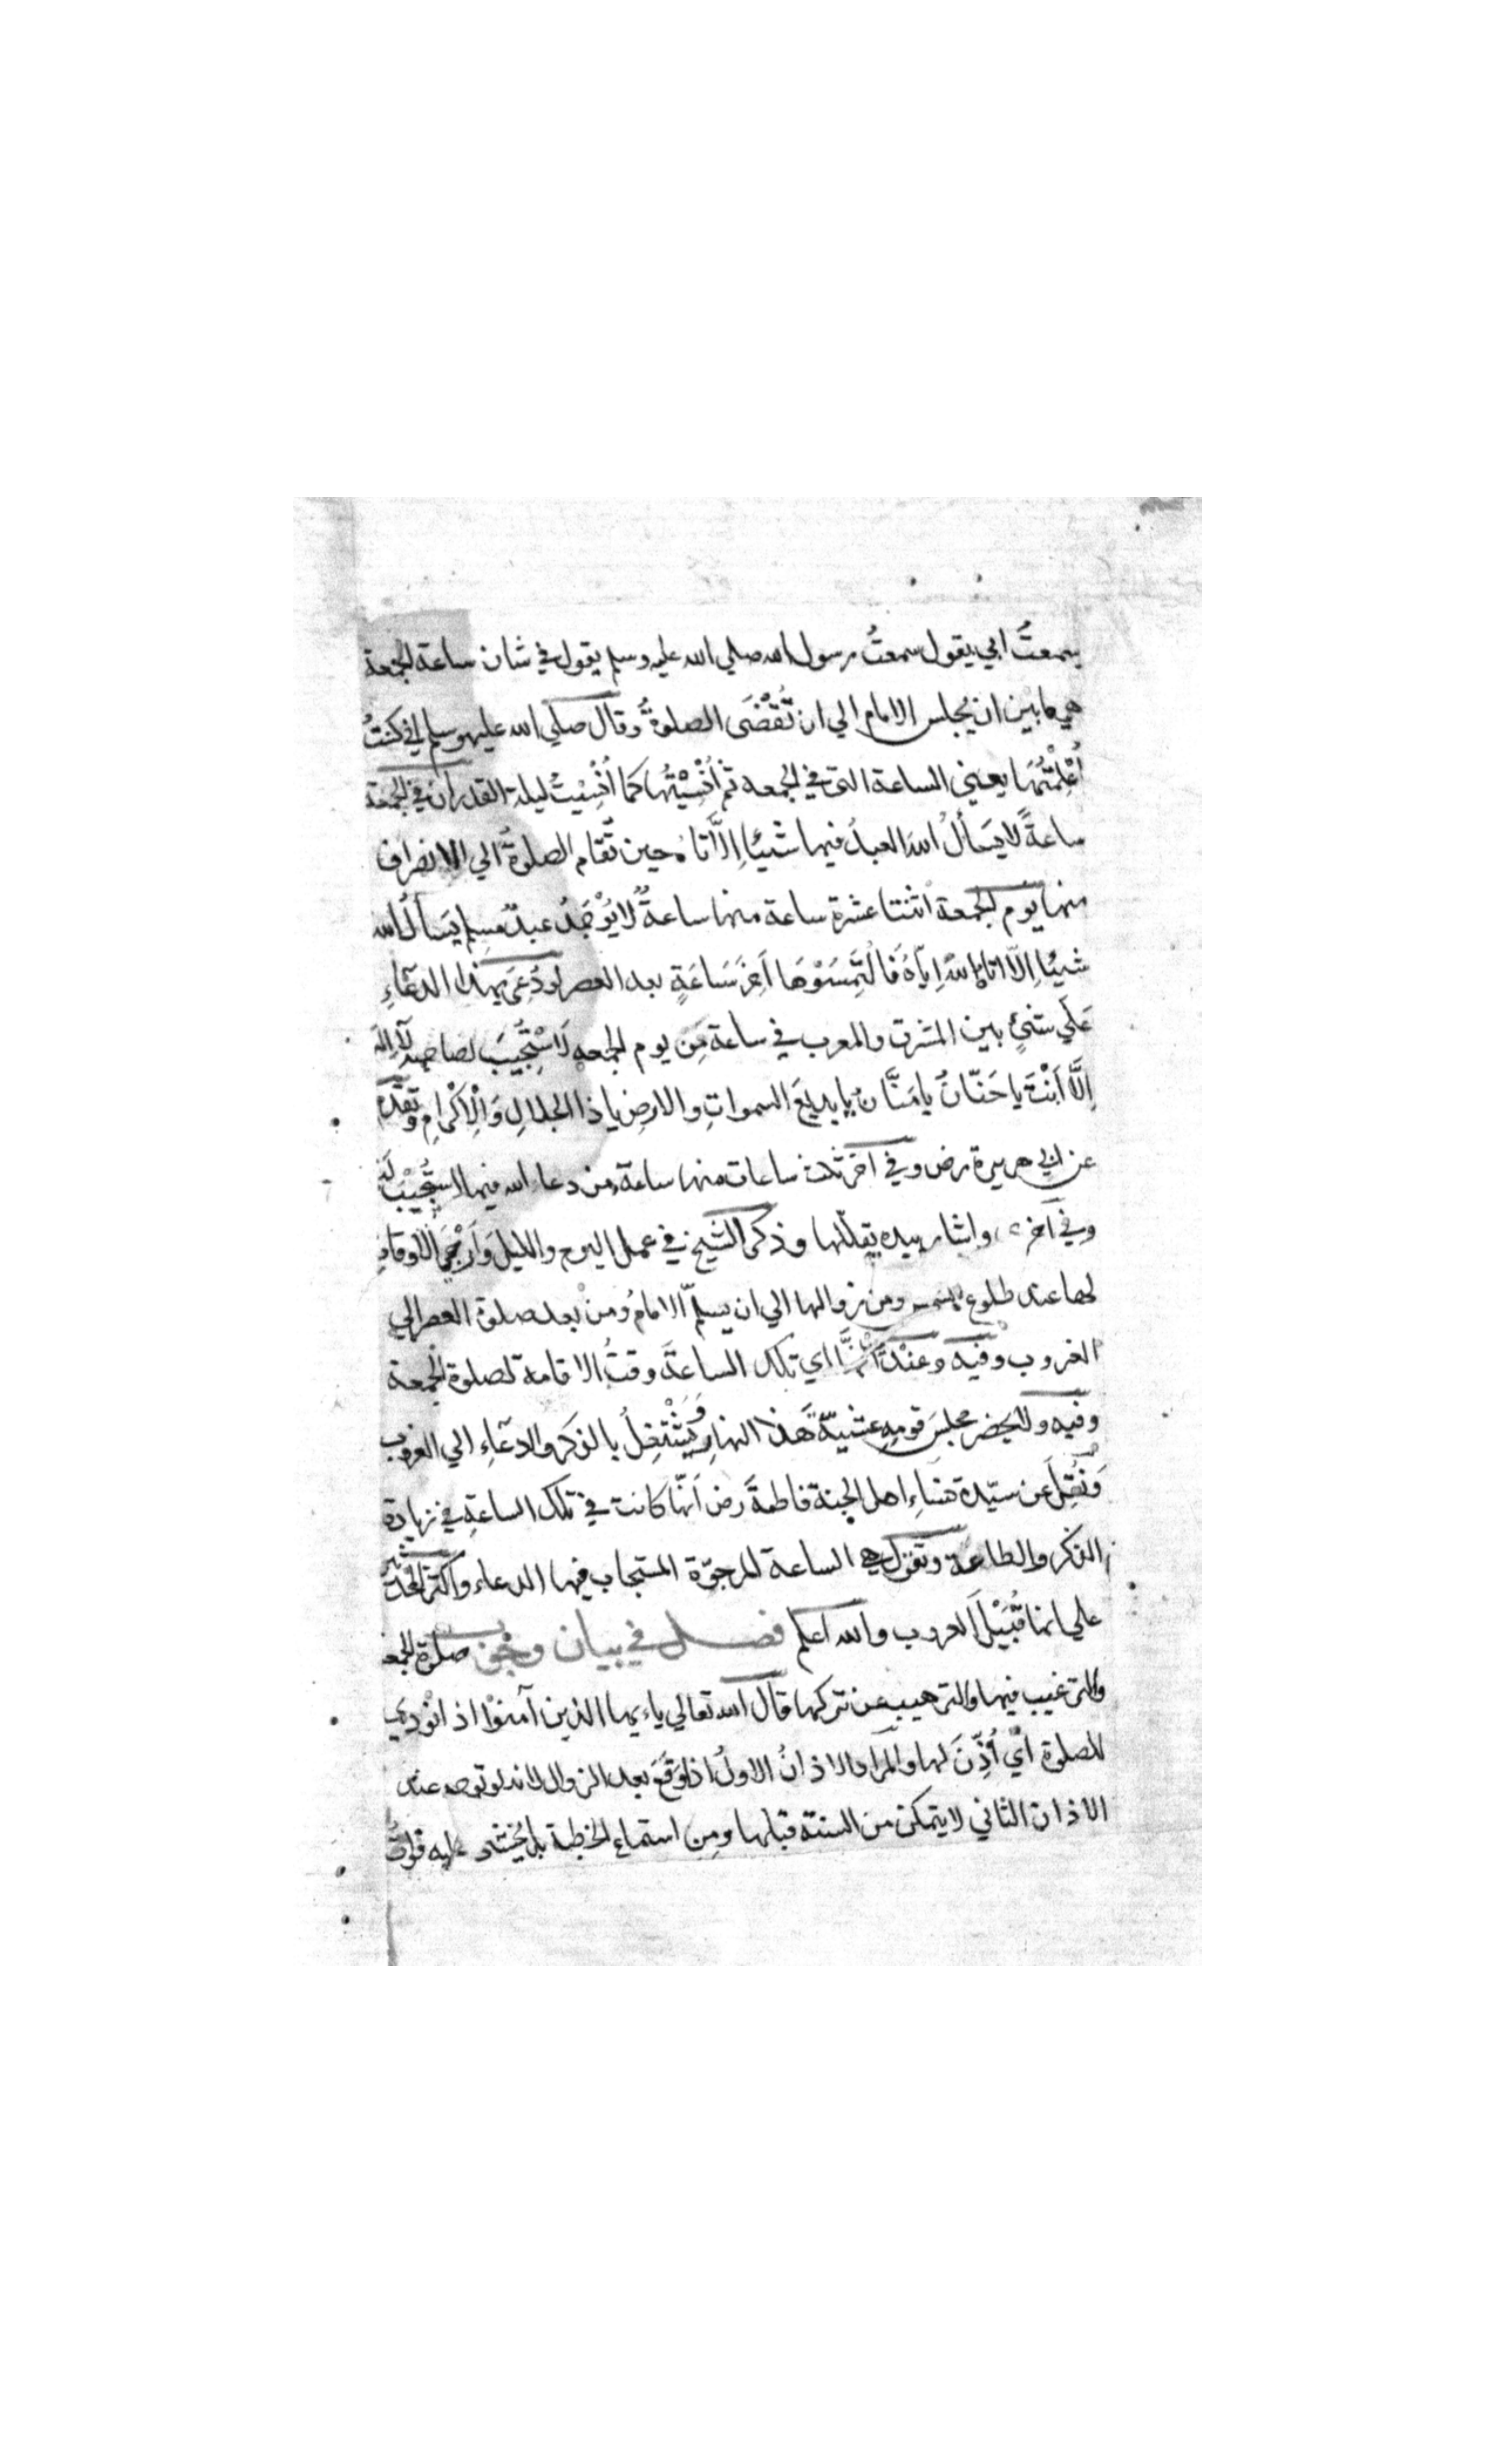 سمعتُ ابي يقول سمعتُ رسول الله صلي الله عليه وسلم يقول في شان ساعة الجمعة
هي ما بين ان يجلس الامام الي ان تُقْضَى الصلوةُ وقال صلي الله عليه وسلم اني كنتُ
أُعْلِمْتُهَا يعني الساعة التي في الجمعه ثم أُنْسِيْتُها كما أُنْسِيْتُ ليلة القدر ان في الجمعة
ساعةً لا يَسألُ اللهَ العبدُ فيها شيئا اِلاَّ اتاهُ حين تُقام الصلوةُ الي الانصراف
منها يوم الجمعة اثنتا عشرة ساعة منها ساعةٌ لا يُوْجَدُ عبدٌ مسلم يَسألُ الله
شيئا اِلاّ اتاهُ اللهُ اِيّاهُ فَالْتَمِسُوْهَا آخِرَ سَاعَةٍ بعد العصر لو دُعِيَ بهذا الدعآءِ
عَلَي شئٍ بين المشرق والمغرب في ساعة مِّن يوم الجمعه لَاسْتُجِيْبَ لصاحبه لآ اِلهَ
اِلَّا اَنْتَ يا حَنّانُ يا مَنَّانُ يا بديعَ السمواتِ والارضِ يا ذا الجلالِ وَالْاِكْرامِ وتقدم
عن ابي هريرة رض وفي آخر ثلث ساعات منها ساعة من دعا الله فيها استُجِيْبَ له
وفي آخري واشار بيده يقللها وذكر الشيخ في عمل اليوم والليل وَاَرْجَي الاوقات
لها عند طلوع الشمس ومن زوالها الي ان يسلّم الامامُ ومن بعد صلوة العصر الي
الغروب وفيه وعنْدَ اي تلك الساعةَ وقتُ الاقامة لصلوة الجمعة
وفيه ولا يحضر مجلسَ قومِهِ عشيّةَ هَذا النهارِ وَيَشْتَغِلُ بالذكر والدعآءِ الي الغروب
وَنُقِلَ عن سيّدة نساءِ اهل الجنة فاطمةَ رض اَنّها كانت في تلك الساعةِ في زيادة
الذكر والطاعة وتقول هي الساعة المرجوّة المستجاب فيها الدعاء واكثر
علي انها قُبَيْلَ الغروب والله اعلم فصل في بيان وجوب صلوة الجمعه
والترغيب فيها والترهيب عن تركها قال الله تعالي ياءيها الذين آمنوْا اذا نُوْدِيَ
للصلوة اَيْ أُذِّنَ لها والمراد الاذانُ الاولُ اذا وَقَعَ بعد الزوال لانه لو توجه عند
الاذان الثاني لا يتمكن من السنة قبلها ومِن استماع الخطبة بل يُخشَي عليه فواتُ